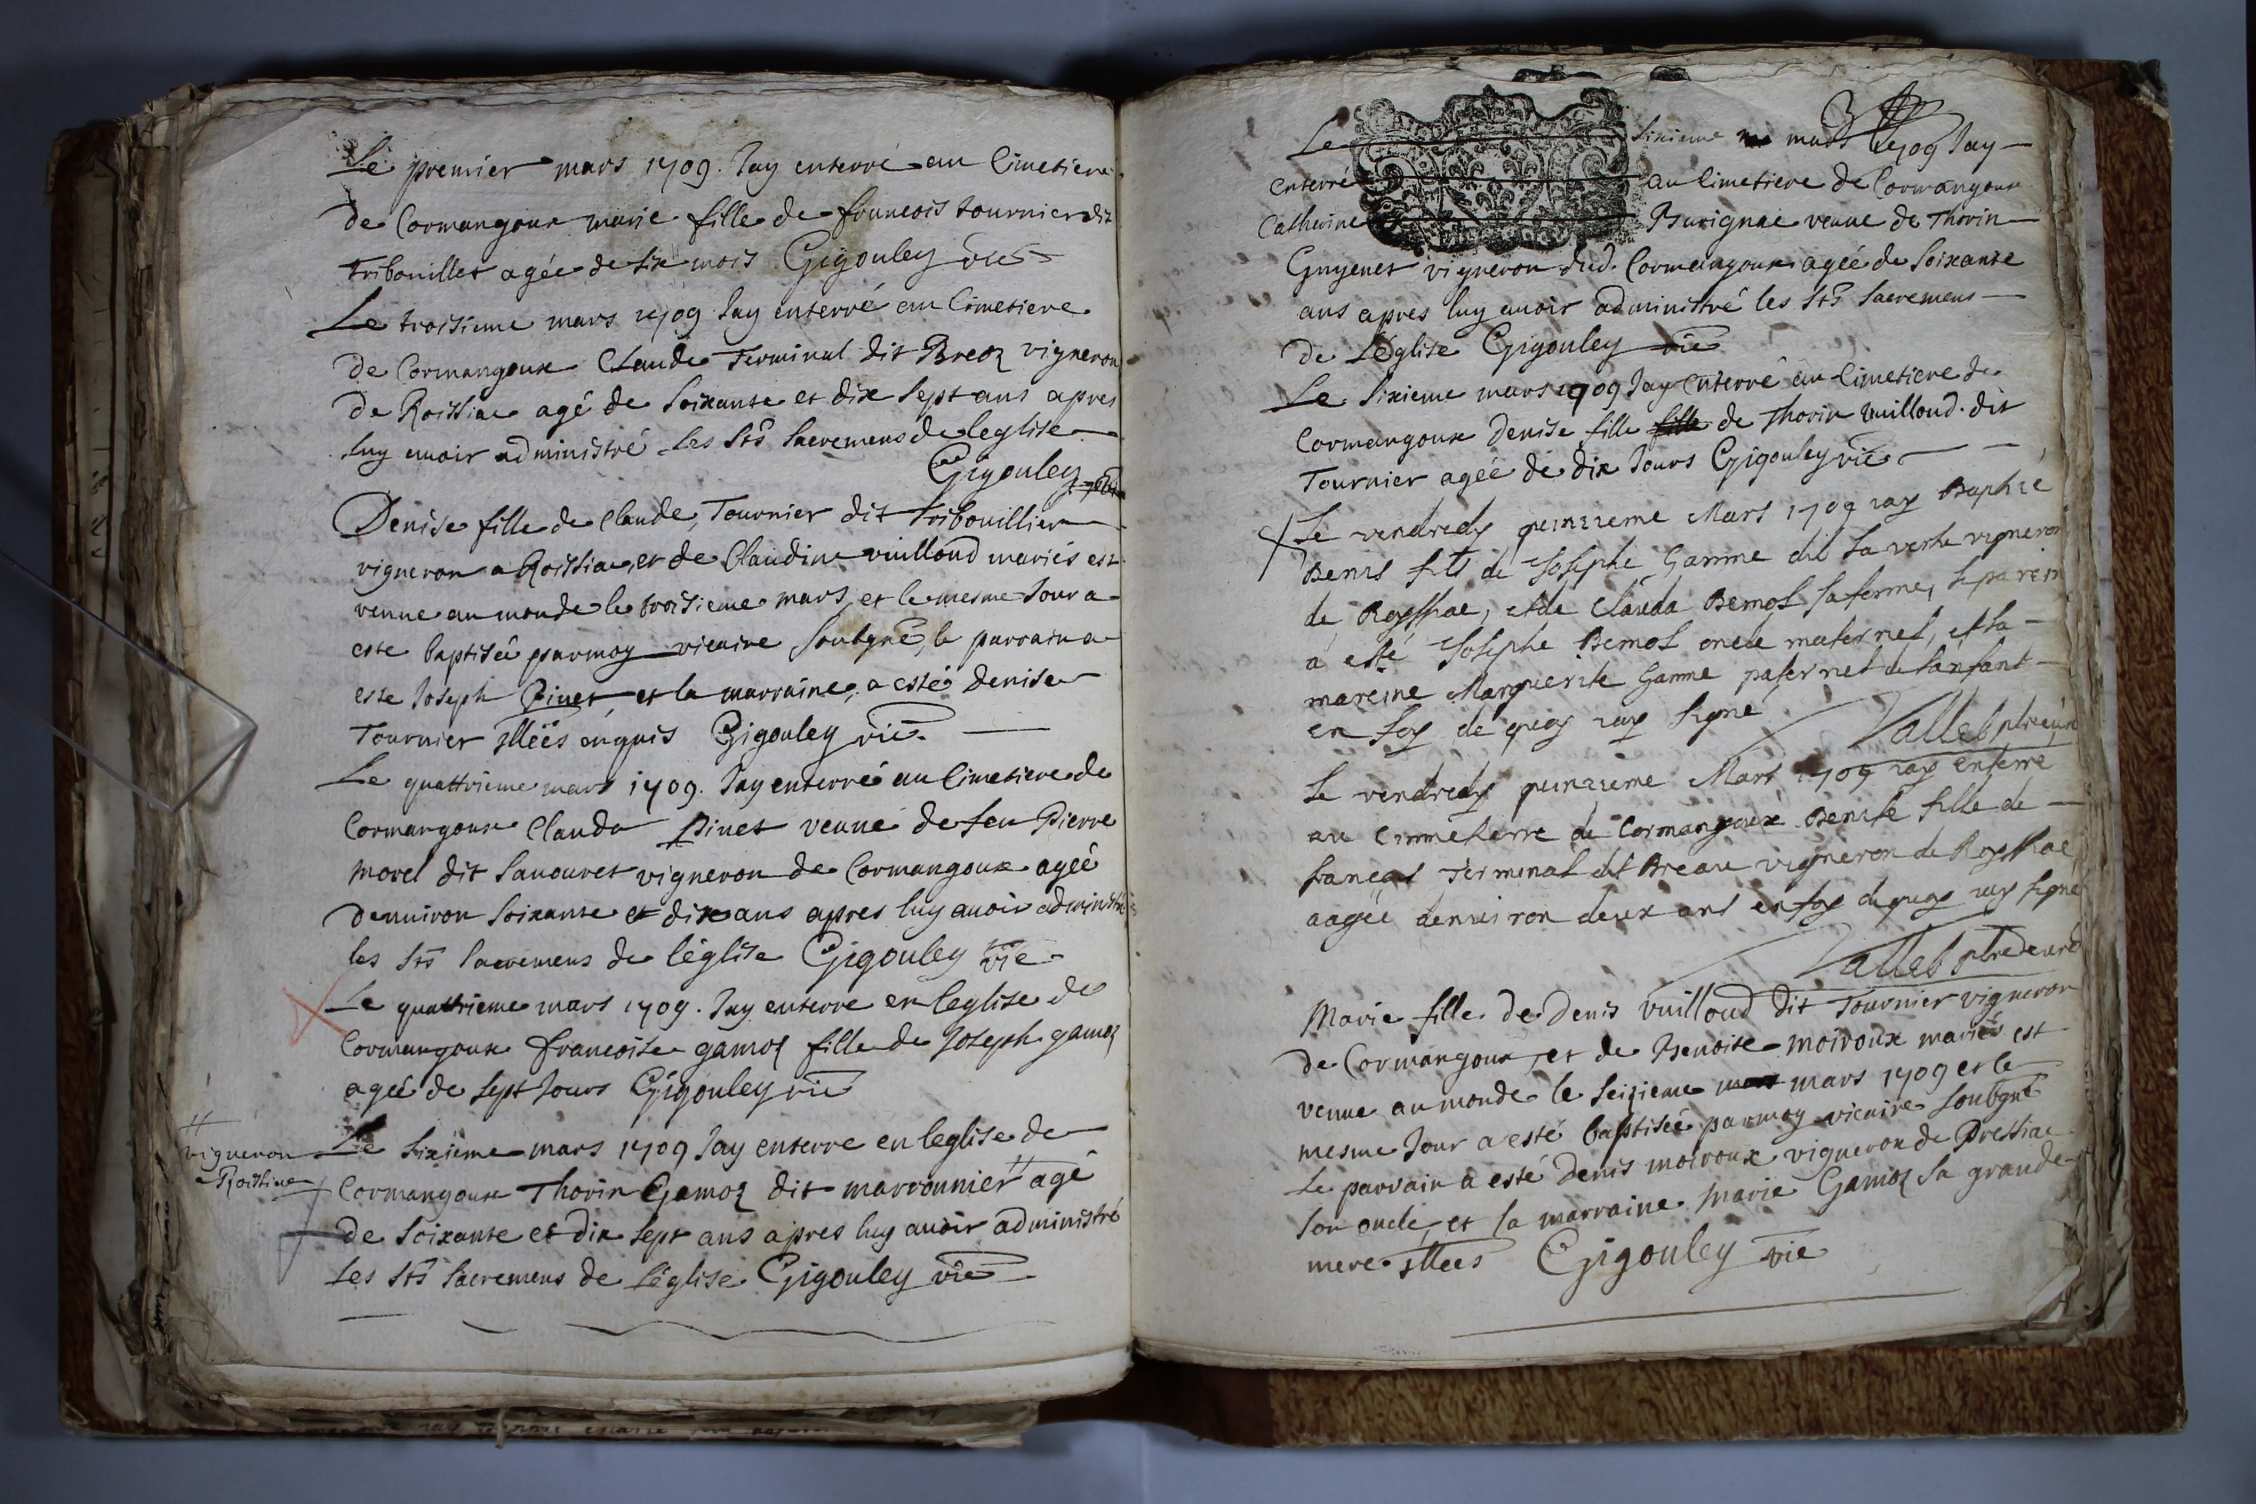 Le premier mars 1709. Jay enterré au Cimetiere
de Cormangoux marie fille de francois tournier dit
tribouillet agée de six mois Gigouley vic
Le troisieme mars 1709 Jay enterré au Cimetiere
de Cormangoux Claude Terminal dit Breoz vigneron
de Roissiac agé de soixante et dix sept ans apres
luy auoir administré les Sts sacremens de leglise
Gigouley
Denise fille de claude Tournier dit tribouillier
vigneron a Roissiac et de Claudine vuilloud mariés est
venue au monde le troisieme mars et le mesme Jour a
este baptisée par moy vicaire soubgné, le parrain a
este Joseph Pinet et la marraine a esté denise
Tournier illéés enquis Gigouley vic
Le quattrieme mars 1709. Jay enterré au Cimetiere de
Cormangoux Clauda Pinet veuue de feu Pierre
morel dit sauouret vigneron de Cormangoux agéé
denuiron soixante et dix ans apres luy auoir administré
les Sts sacremens de léglise Gigouley vic
Le quattrieme mars 1709. Jay enterre en leglise de
Cormangoux francoise gamoz fille de Joseph gamoz
agéé de sept Jours Gigouley vic
Le sixieme mars 1709 Jay enterre en leglise de
vigneron
Roissiac
Cormangoux Thorin Gamoz dit marronnier // agé
de soixante et dix sept ans apres luy auoir administré
les Sts sacremens de léglise Gigouley vic
Le sixieme mars 1709 Jay
enterré au Cimetiere de Cormangoux
Catherine Burignac veuue de Thorin
Guyenet vigneron dud. Cormangoux agéé de soixante
ans apres luy auoir administré les Sts sacremens
de Léglise Gigouley vic
Le sixieme mars 1709 Jay enterré au Cimetiere de
Cormangoux denise fille fille de Thorin vuilloud dit
Tournier agéé de dix Jours Gigouley vic
Le vendredy quinzieme Mars 1709 iay Baptisé
Denis fils de Josephe Gamme dit la verte vigneron
de Royssiac, et de Clauda Bemol sa femme, le parein
a esté Josephe Bemol oncle maternel, et la
mareine Marguerite Gamme paternel de lanfant
en foy de quoy iay signé
Vallet ptre curé
Le vendredy quinzieme Mars 1709 iay enterre
au Cimmetierre de Cormangoux Benite fille de
francois Terminal dit Breau vigneron de Royssiac
aagéé denuiron deux ans en foy de quoy iay signé
Vallet ptre curé
Marie fille de Denis vuilloud dit Tournier vigneron
de Cormangoux et de Benoite moiroux mariés est
venue au monde le seizieme mars 1709 et le
mesme Jour a esté baptiséé par moy vicaire soubgné
Le parrain a esté Denis moiroux vigneron de Pressiac
son oncle, et la marraine marie Gamoz sa grande
mere illéés Gigouley vic